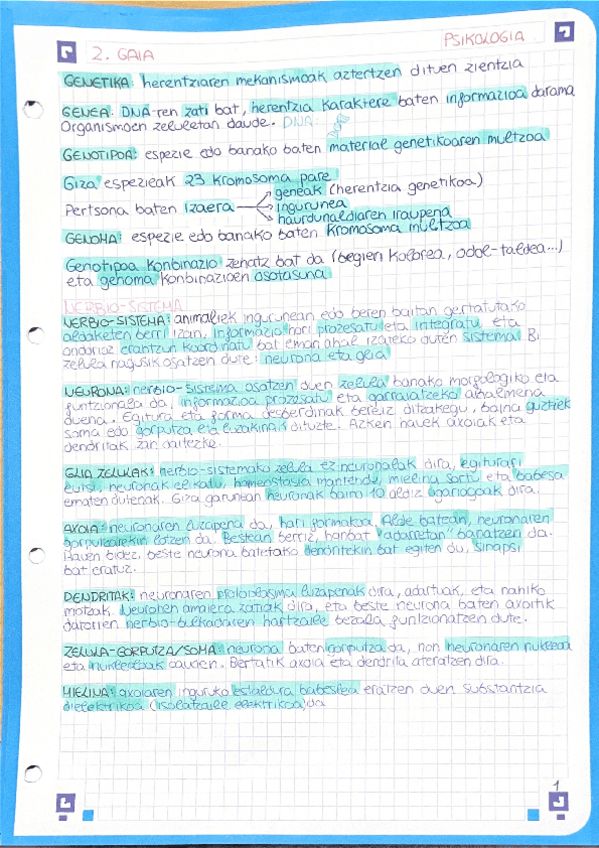 PSIKOLOGIA
2. GAIA
GENETIKA: herentziaren mekanismoak aztertzen dituen zientzia
GENEA: DNA-ren zati bat, herentzia karaktere baten informazioa darama
Organismoen zeluletan daude. DNA:
GENOTIPOA: espezie edo banako baten material genetikoaren multzoa
Giza espezieak 23 kromosoma pare
geneak (herentzia genetikoa)
Pertsona baten izaera ingurunea
haurdunaldiaren iraupena
GENOMA: espezie edo banako baten kromosoma multzoa
Genotipoa konbinazio zenatz bat da (begien kolorea, odol-taldea...)
eta genoma konbinazioen osotasuna
NERBIO-SISTEMA
NERBIO-SISTEMA: animaliek ingurunean edo beren baitan gertatutako
aldaketen berri izan, informazio hori prozesatu eta integratu, eta
ondorioz erantzun koordinatu bat eman ahal izateko duten sistema. Bi
zelula nagusik osatzen dute: neurona eta glia
NEURONA: nerbio-sistema osatzen duen zelula banako morfologiko eta
funtzionala da, informazioa prozesatu eta garraiatzeko ahalmena
duena. Egitura eta forma desberdinak bereiz ditzakegu, baina guztiek
soma edo gorputza eta luzakinak dituzte. Azken hauek axoiak eta
dendritak izan daitezke.
GLIA ZELULAK: nerbio-sistemako zelula ez neuronalak dira, egiturari
eutsi, neuronak elikatu, homeostasia mantendu, mielina sortu eta babesa
ematen dutenak. Giza garunean neuronak baino 10 aldiz ugariagoak dira.
AXOIA: neuronaren luzapena da, hari formakoa. Alde batean, neuronaren
gorputzarekin lotzen da. Bestean berriz, hainbat "adarretan" banatzen da.
Hauen bidez, beste neurona batetako dendritekin bat egiten du, sinapsi
bat eratuz.
DENDRITAK: neuronaren protoplasma luzapenak dira, adartuak, eta nahiko
motzak. Neuronen amaiera zatiak dira, eta beste neurona baten axoitik
datorren nerbio-bulkadaren hartzaile bezala funtzionatzen dute.
ZELULA-GORPUTZA/SOMA: neurona baten gorputza da, non neuronaren nukleoa
eta nukleoloak dauden. Bertatik axoia eta dendrita ateratzen dira.
MIELINA: axoiaren inguruko estaldura babeslea eratzen duen substantzia
dielektrikoa (isolatzaile elektrikoa) da
1